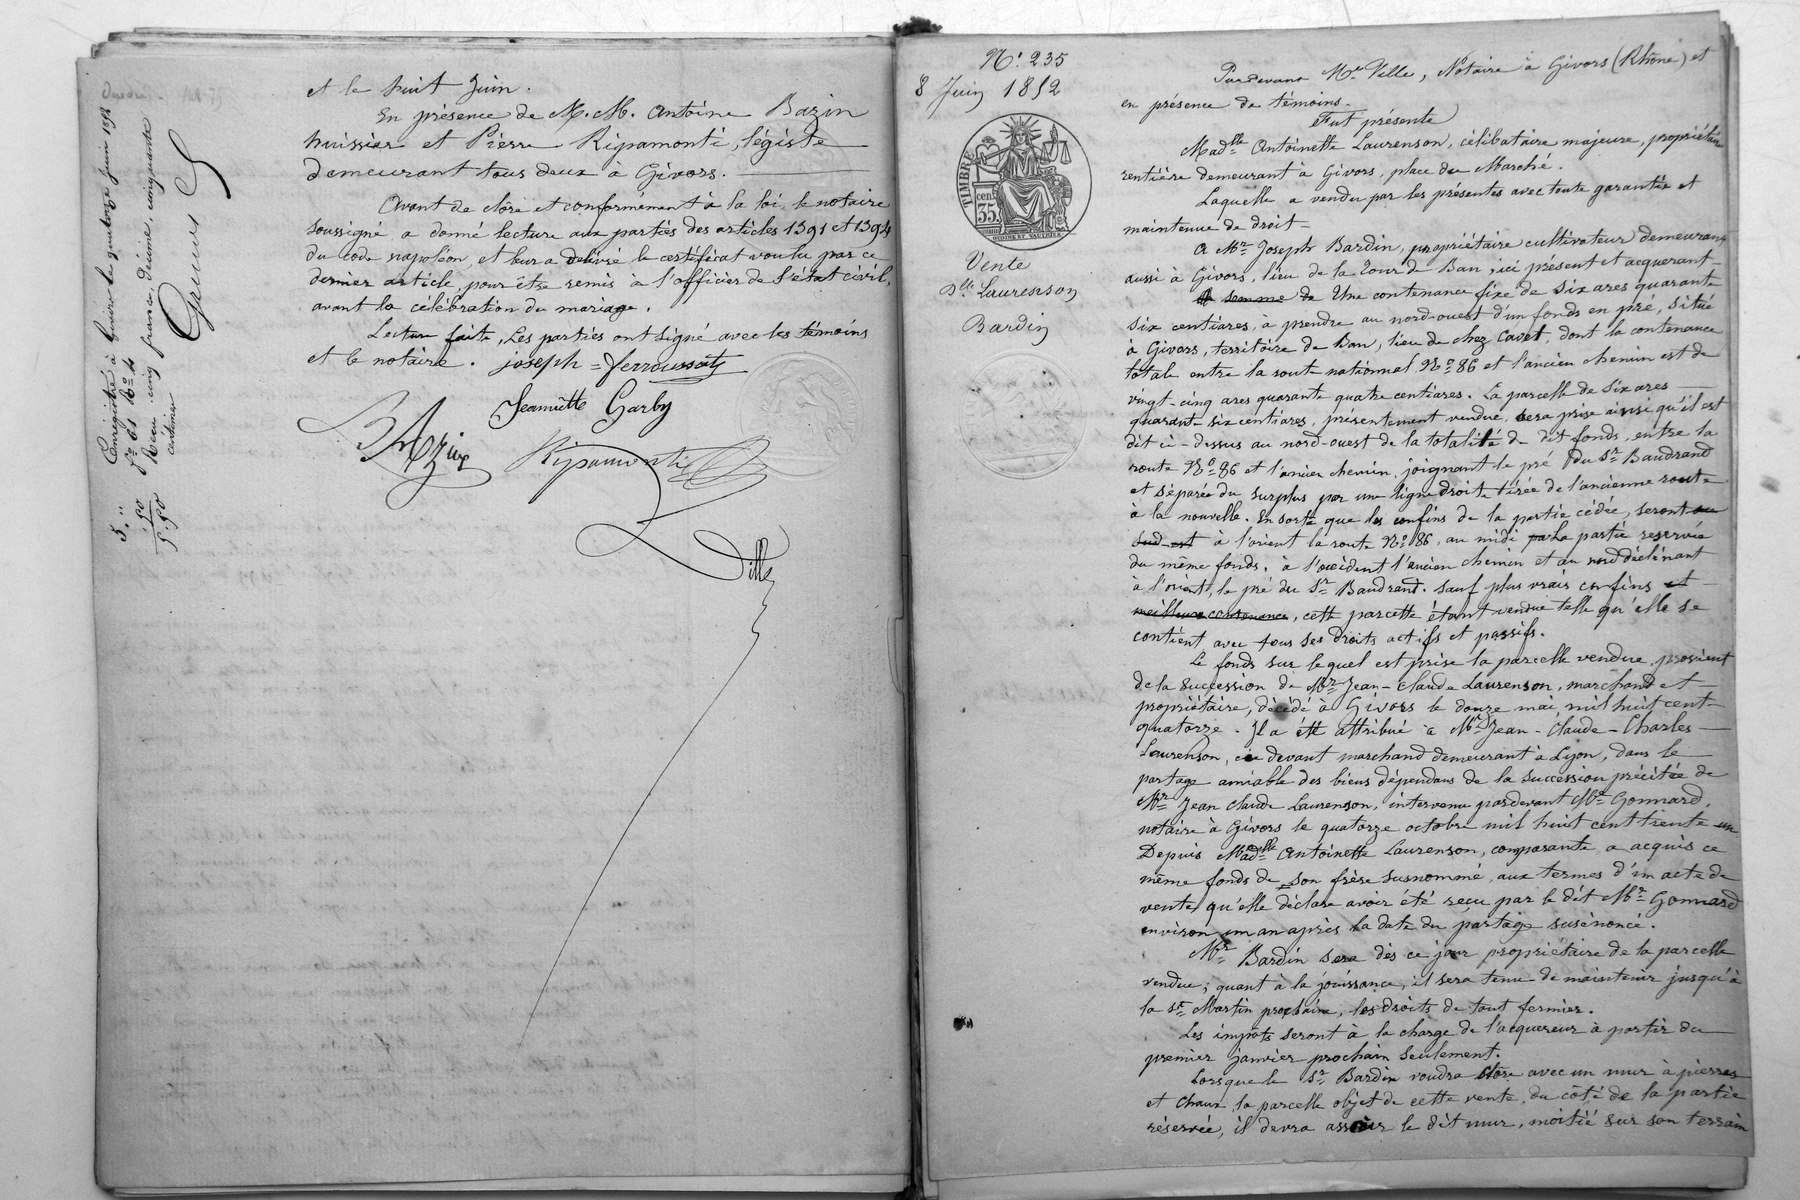 et le huit Juin.
En présence de M.M. Antoine Bazin
huissier et Pierre Ripamonti, légiste
demeurant tous deux à Givors.
Avant de clôre et conformément à la loi, le notaire
soussigné a donné lecture aux parties des articles 1391 et 1394
du code napoléon, et leur a délivré le certificat voulu par ce
dernier article, pour être remis à l'officier de l'état civil,
avant la célébration du mariage.
Lecture faite, Les parties ont signé avec les témoins
et le notaire. joseph = ferroussat
Jeannette Garby
Bazin
Ripamonti
Ville
Enregistré à Givors le quatorze juin 1852
fo 61 Ro c 4
Reçu cinq francs, décime, cinquante
centimes
5. "
" 50
5. 50
No. 235
8 Juin 1852
TIMBRE
35 cent
Vente
Dlle Laurenson
Bardin
Pardevant Me Ville, Notaire à Givors (Rhône) et
en présence de témoins.
Fut présente
Madlle Antoinette Laurenson, célibataire majeure, propriétaire
rentière demeurant à Givors, place du Marché.
Laquelle a vendu par les présentes avec toute garantie et
maintenue de droit
A Mr Joseph Bardin, propriétaire cultivateur demeurant
aussi à Givors, lieu de la Tour de Ban, ici présent et acquerant
la somme de Une contenance fixe de six ares quarante
six centiares, à prendre au nord-ouest d'un fonds en pré, situé
à Givors, territoire de Ban, lieu de chez Cavet, dont la contenance
totale entre la route nationnal No 86 et l'ancien chemin est de
vingt-cinq ares quarante quatre centiares. La parcelle de six ares
quarante-six centiares, présentement vendue, sera prise ainsi qu'il est
dit ci-dessus au nord-ouest de la totalité du dit fonds, entre la
route No 86 et l'ancien chemin, joignant le pré du Sr Baudrand
et séparée du surplus par une ligne droite tirée de l'ancienne route
à la nouvelle. En sorte que les confins de la partie cédée, seront au
sud-est à l'orient la route No 86, au midi par la partie reservée
du même fonds, à l'occident l'ancien chemin et au nord déclinant
à l'orient, le pré du Sr Baudrand. sauf plus vrais confins et
meilleure contenance, cette parcelle étant vendue telle qu'elle se
contient avec tous ses droits actifs et passifs.
Le fonds sur lequel est prise la parcelle vendue, provient
de la succession de Mr Jean-Claude Laurenson, marchand et
propriétaire, décédé à Givors le douze mai, mil huit cent
quatorze. Il a été attribué à Mr Jean-Claude-Charles
Laurenson, ci devant marchand demeurant à Lyon, dans le
partage amiable des biens dépendans de la succession précitée de
Mr Jean Claude Laurenson, intervenu pardevant Me Gonnard,
notaire à Givors le quatorze octobre mil huit cent trente un
Depuis Madlle Antoinette Laurenson, comparante a acquis ce
même fonds de son frère susnommé, aux termes d'un acte de
vente qu'elle déclare avoir été reçu par le dit Me Gonnard
environ un an après la date du partage susénoncé.
Mr Bardin sera dès ce jour propriétaire de la parcelle
vendue; quant à la jouissance, il sera tenu de maintenir jusqu'à
la St Martin prochaine, les droits de tout fermier.
Les impôts seront à la charge de l'acquereur à partir du
premier janvier prochain seulement.
Lorsque le Sr Bardin voudra clôre avec un mur à pierres
et chaux la parcelle objet de cette vente, du côté de la partie
réservée, il devra asseoir le dit mur, moitié sur son terrain